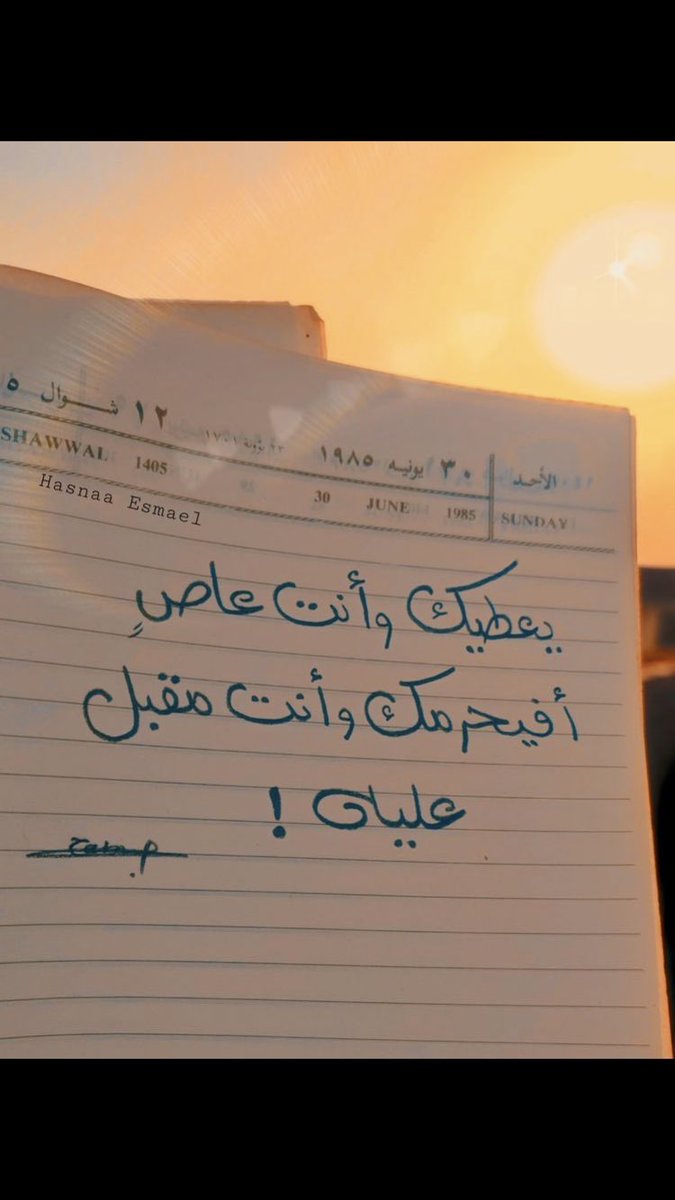 الأحد ٣٠ يونيه ١٩٨٥ ١٢ شوال ٥
SHAWWAL 1405 30 JUNE 1985 SUNDAY
Hasnaa Esmael
يعطيك وأنت عاصٍ
أفيحرمك وأنت مقبل
عليه !